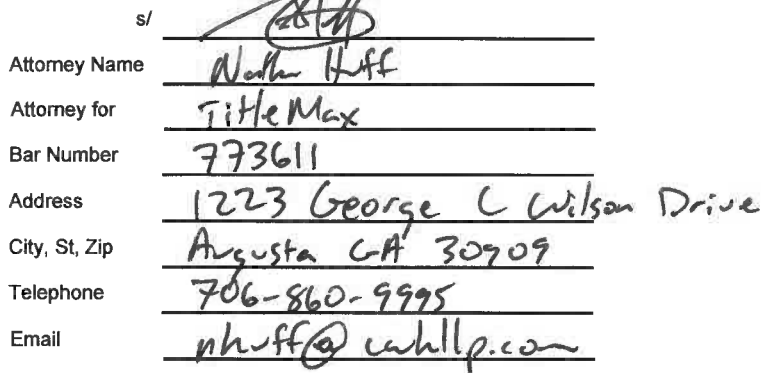 s/
Attorney Name Nathan Huff
Attorney for TitleMax
Bar Number 773611
Address 1223 George C Wilson Drive
City, St, Zip Augusta GA 30909
Telephone 706-860-9995
Email nhuff@cwhllp.com